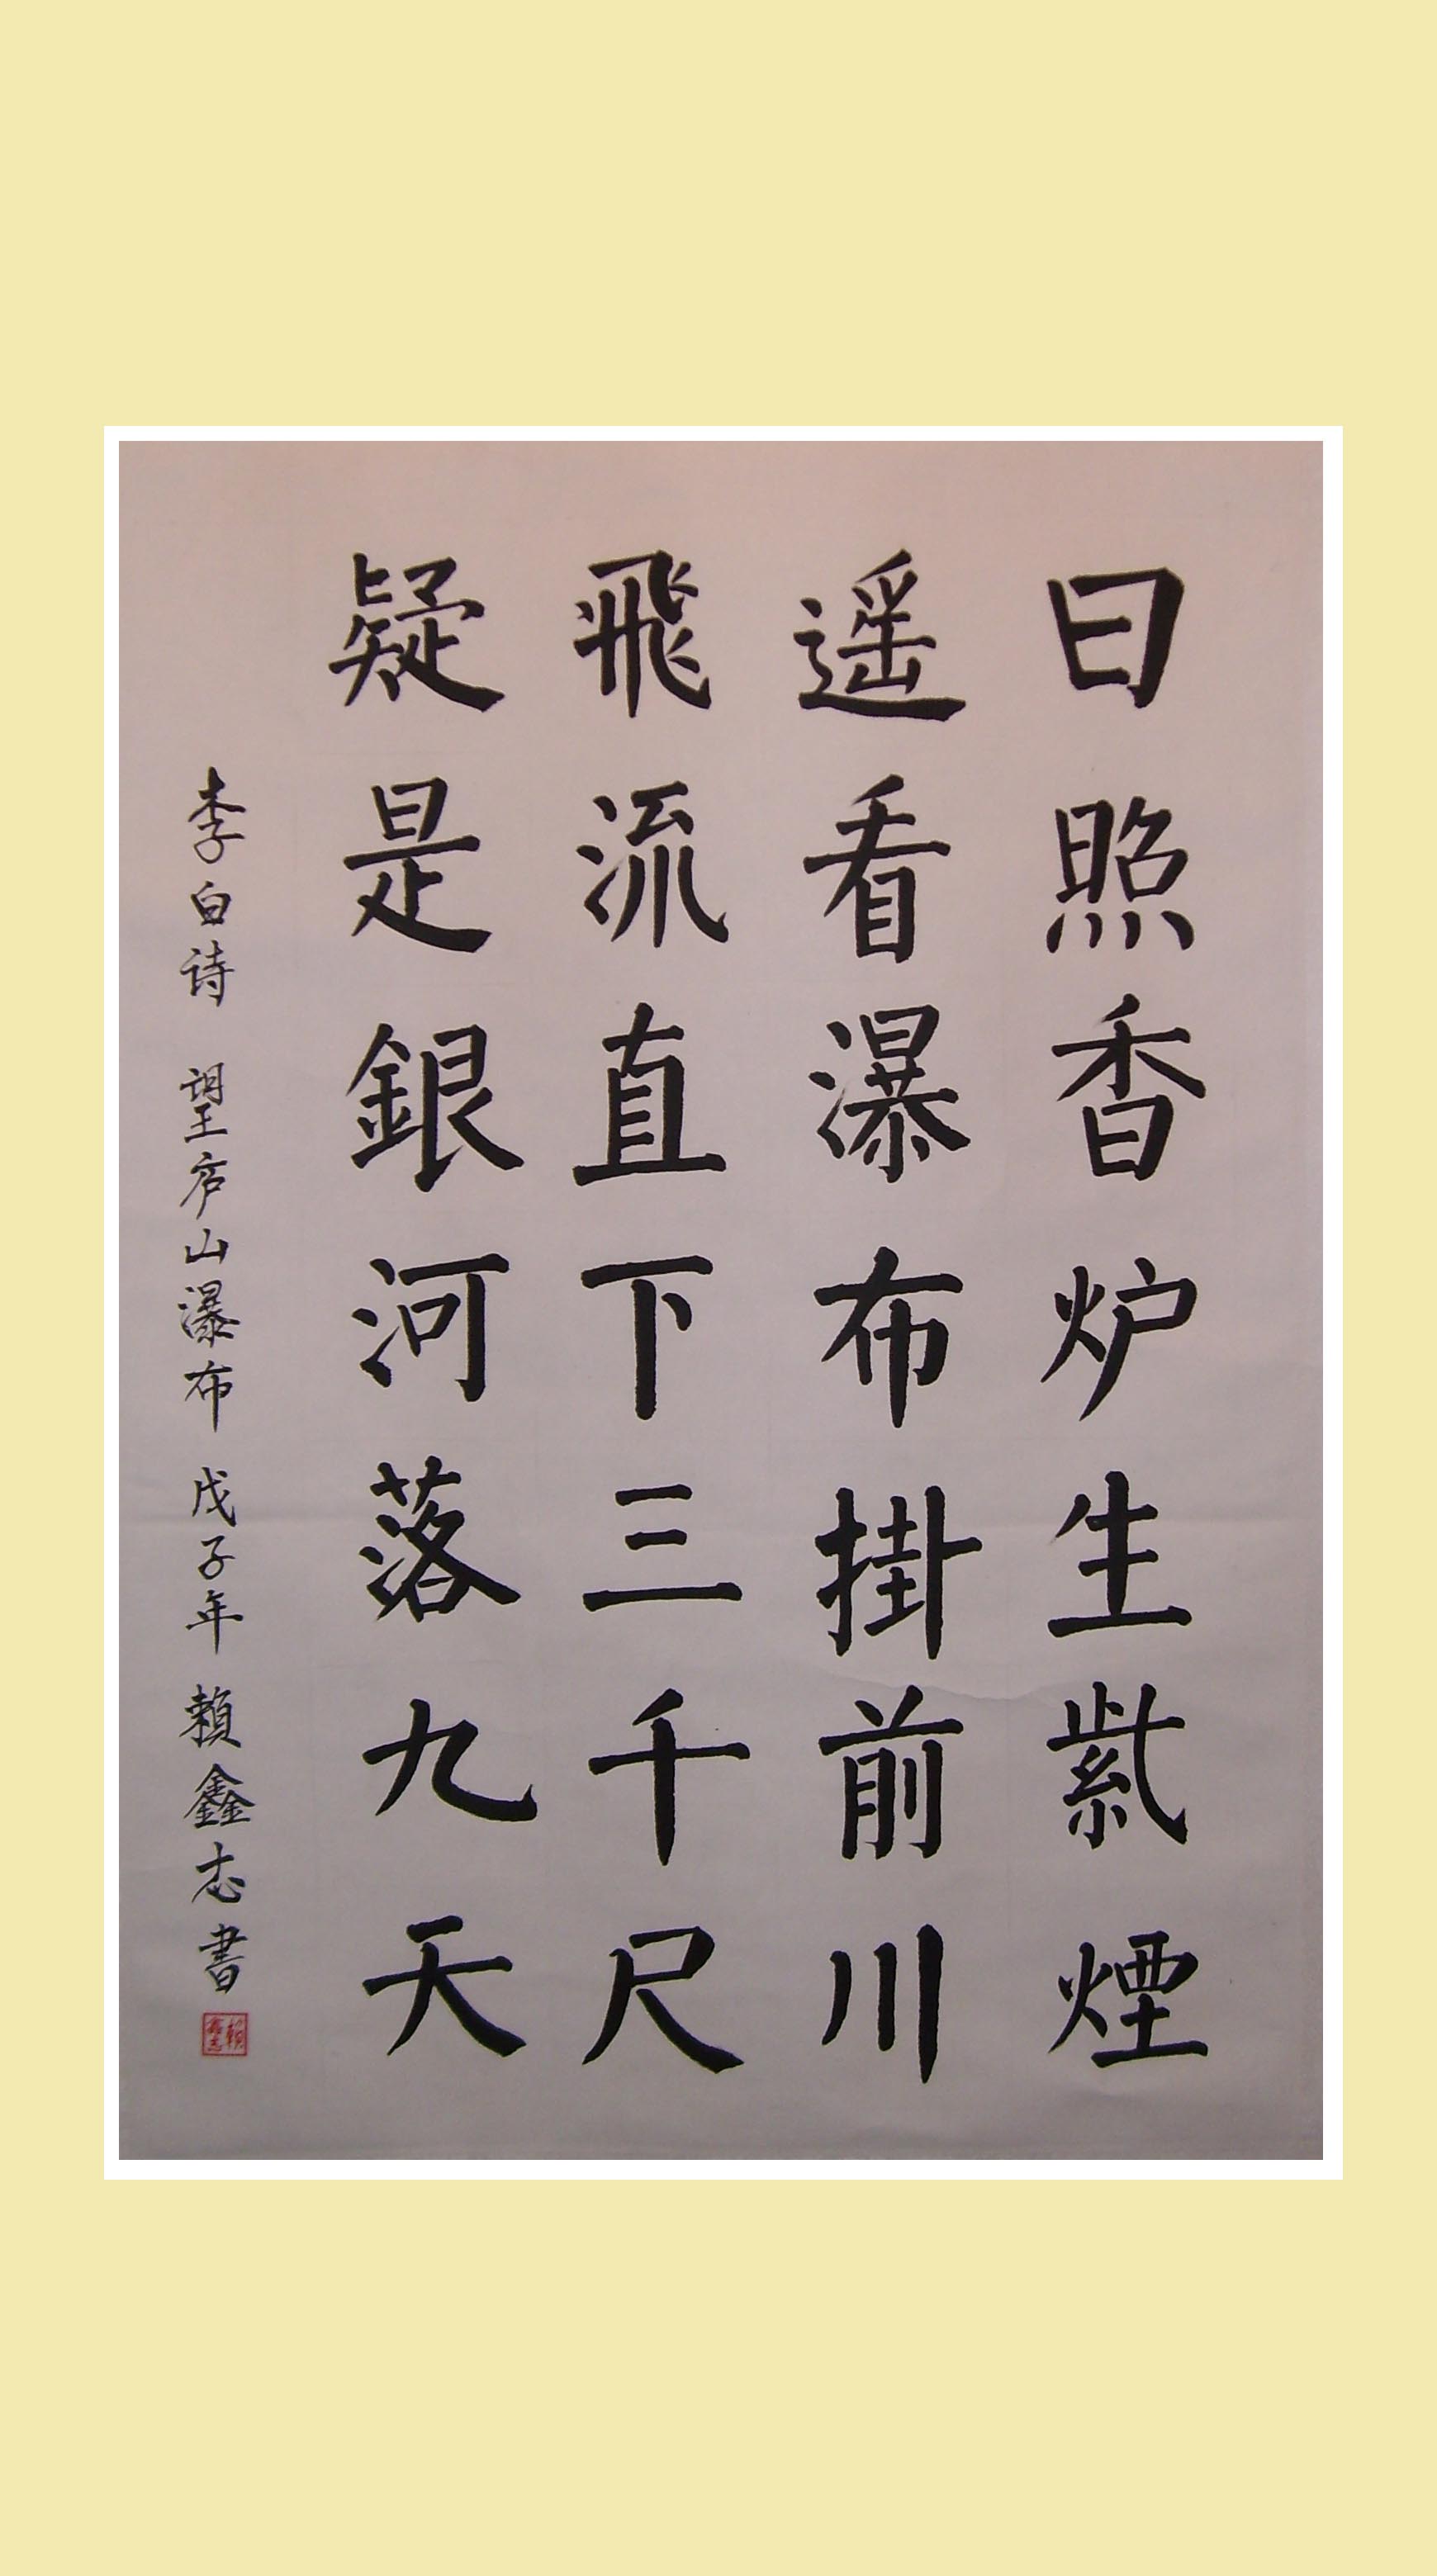 日照香炉生紫煙
遥看瀑布掛前川
飛流直下三千尺
疑是銀河落九天
李白诗 望庐山瀑布 戊子年 賴鑫志書
賴鑫志